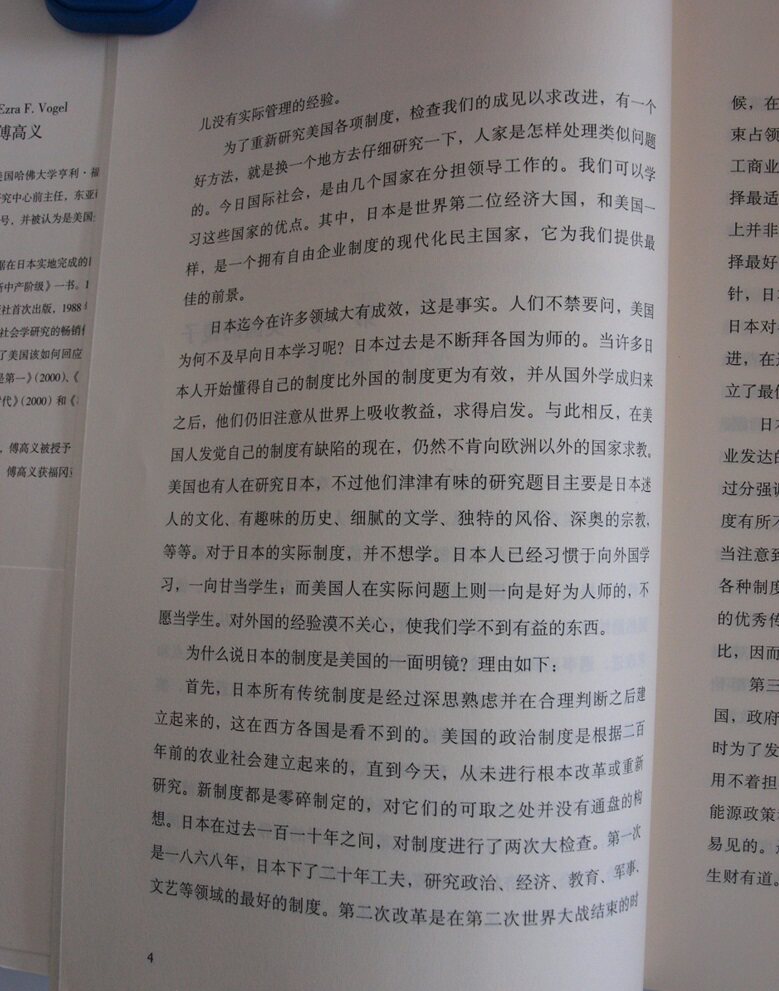 Ezra F. Vogel
傅高义
美国哈佛大学亨利·福
研究中心前主任，东亚
号，并被认为是美国
据在日本实地完成的
新中产阶级》一书。1
社首次出版，1988
社会学研究的畅销
了美国该如何回应
是第一》(2000)、《
代》(2000) 和《
，傅高义被授予
傅高义获福冈
儿没有实际管理的经验。
为了重新研究美国各项制度，检查我们的成见以求改进，有一个
好方法，就是换一个地方去仔细研究一下，人家是怎样处理类似问题
的。今日国际社会，是由几个国家在分担领导工作的。我们可以学
习这些国家的优点。其中，日本是世界第二位经济大国，和美国一
样，是一个拥有自由企业制度的现代化民主国家，它为我们提供最
佳的前景。
日本迄今在许多领域大有成效，这是事实。人们不禁要问，美国
为何不及早向日本学习呢？日本过去是不断拜各国为师的。当许多日
本人开始懂得自己的制度比外国的制度更为有效，并从国外学成归来
之后，他们仍旧注意从世界上吸收教益，求得启发。与此相反，在美
国人发觉自己的制度有缺陷的现在，仍然不肯向欧洲以外的国家求教。
美国也有人在研究日本，不过他们津津有味的研究题目主要是日本迷
人的文化、有趣味的历史、细腻的文学、独特的风俗、深奥的宗教，
等等。对于日本的实际制度，并不想学。日本人已经习惯于向外国学
习，一向甘当学生；而美国人在实际问题上则一向是好为人师的，不
愿当学生。对外国的经验漠不关心，使我们学不到有益的东西。
为什么说日本的制度是美国的一面明镜？理由如下：
首先，日本所有传统制度是经过深思熟虑并在合理判断之后建
立起来的，这在西方各国是看不到的。美国的政治制度是根据二百
年前的农业社会建立起来的，直到今天，从未进行根本改革或重新
研究。新制度都是零碎制定的，对它们的可取之处并没有通盘的构
想。日本在过去一百一十年之间，对制度进行了两次大检查。第一次
是一八六八年，日本下了二十年工夫，研究政治、经济、教育、军事、
文艺等领域的最好的制度。第二次改革是在第二次世界大战结束的时
4
候，在
束占领
工商业
择最适
上并非
择最好
针，日
日本对
进，在
立了最
日本
业发达的
过分强调
度有所不
当注意到
各种制度
的优秀传
比，因而
第三
国，政府
时为了发
用不着担
能源政策
易见的。
生财有道。